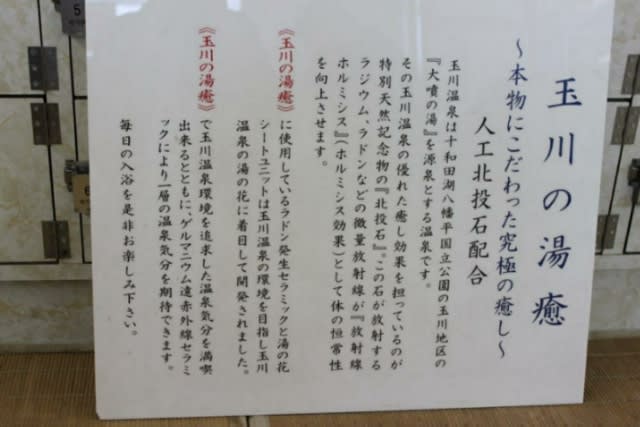 玉川の湯癒
～本物にこだわった究極の癒し～
人工北投石配合
玉川温泉は十和田湖八幡平国立公園の玉川地区の
『大噴の湯』を源泉とする温泉です。
その玉川温泉の優れた癒し効果を担っているのが
特別天然記念物の『北投石』。この石が放射する
ラジウム、ラドンなどの微量放射線が『放射線
ホルミシス』（ホルミシス効果）として体の恒常性
を向上させます。
《玉川の湯癒》に使用しているラドン発生セラミックと湯の花
シートユニットは玉川温泉の環境を目指し玉川
温泉の湯の花に着目して開発されました。
《玉川の湯癒》で玉川温泉環境を追求した温泉気分を満喫
出来るとともに、ゲルマニウム遠赤外線セラミ
ックにより一層の温泉気分を期待できます。
毎日の入浴を是非お楽しみ下さい。
5
6